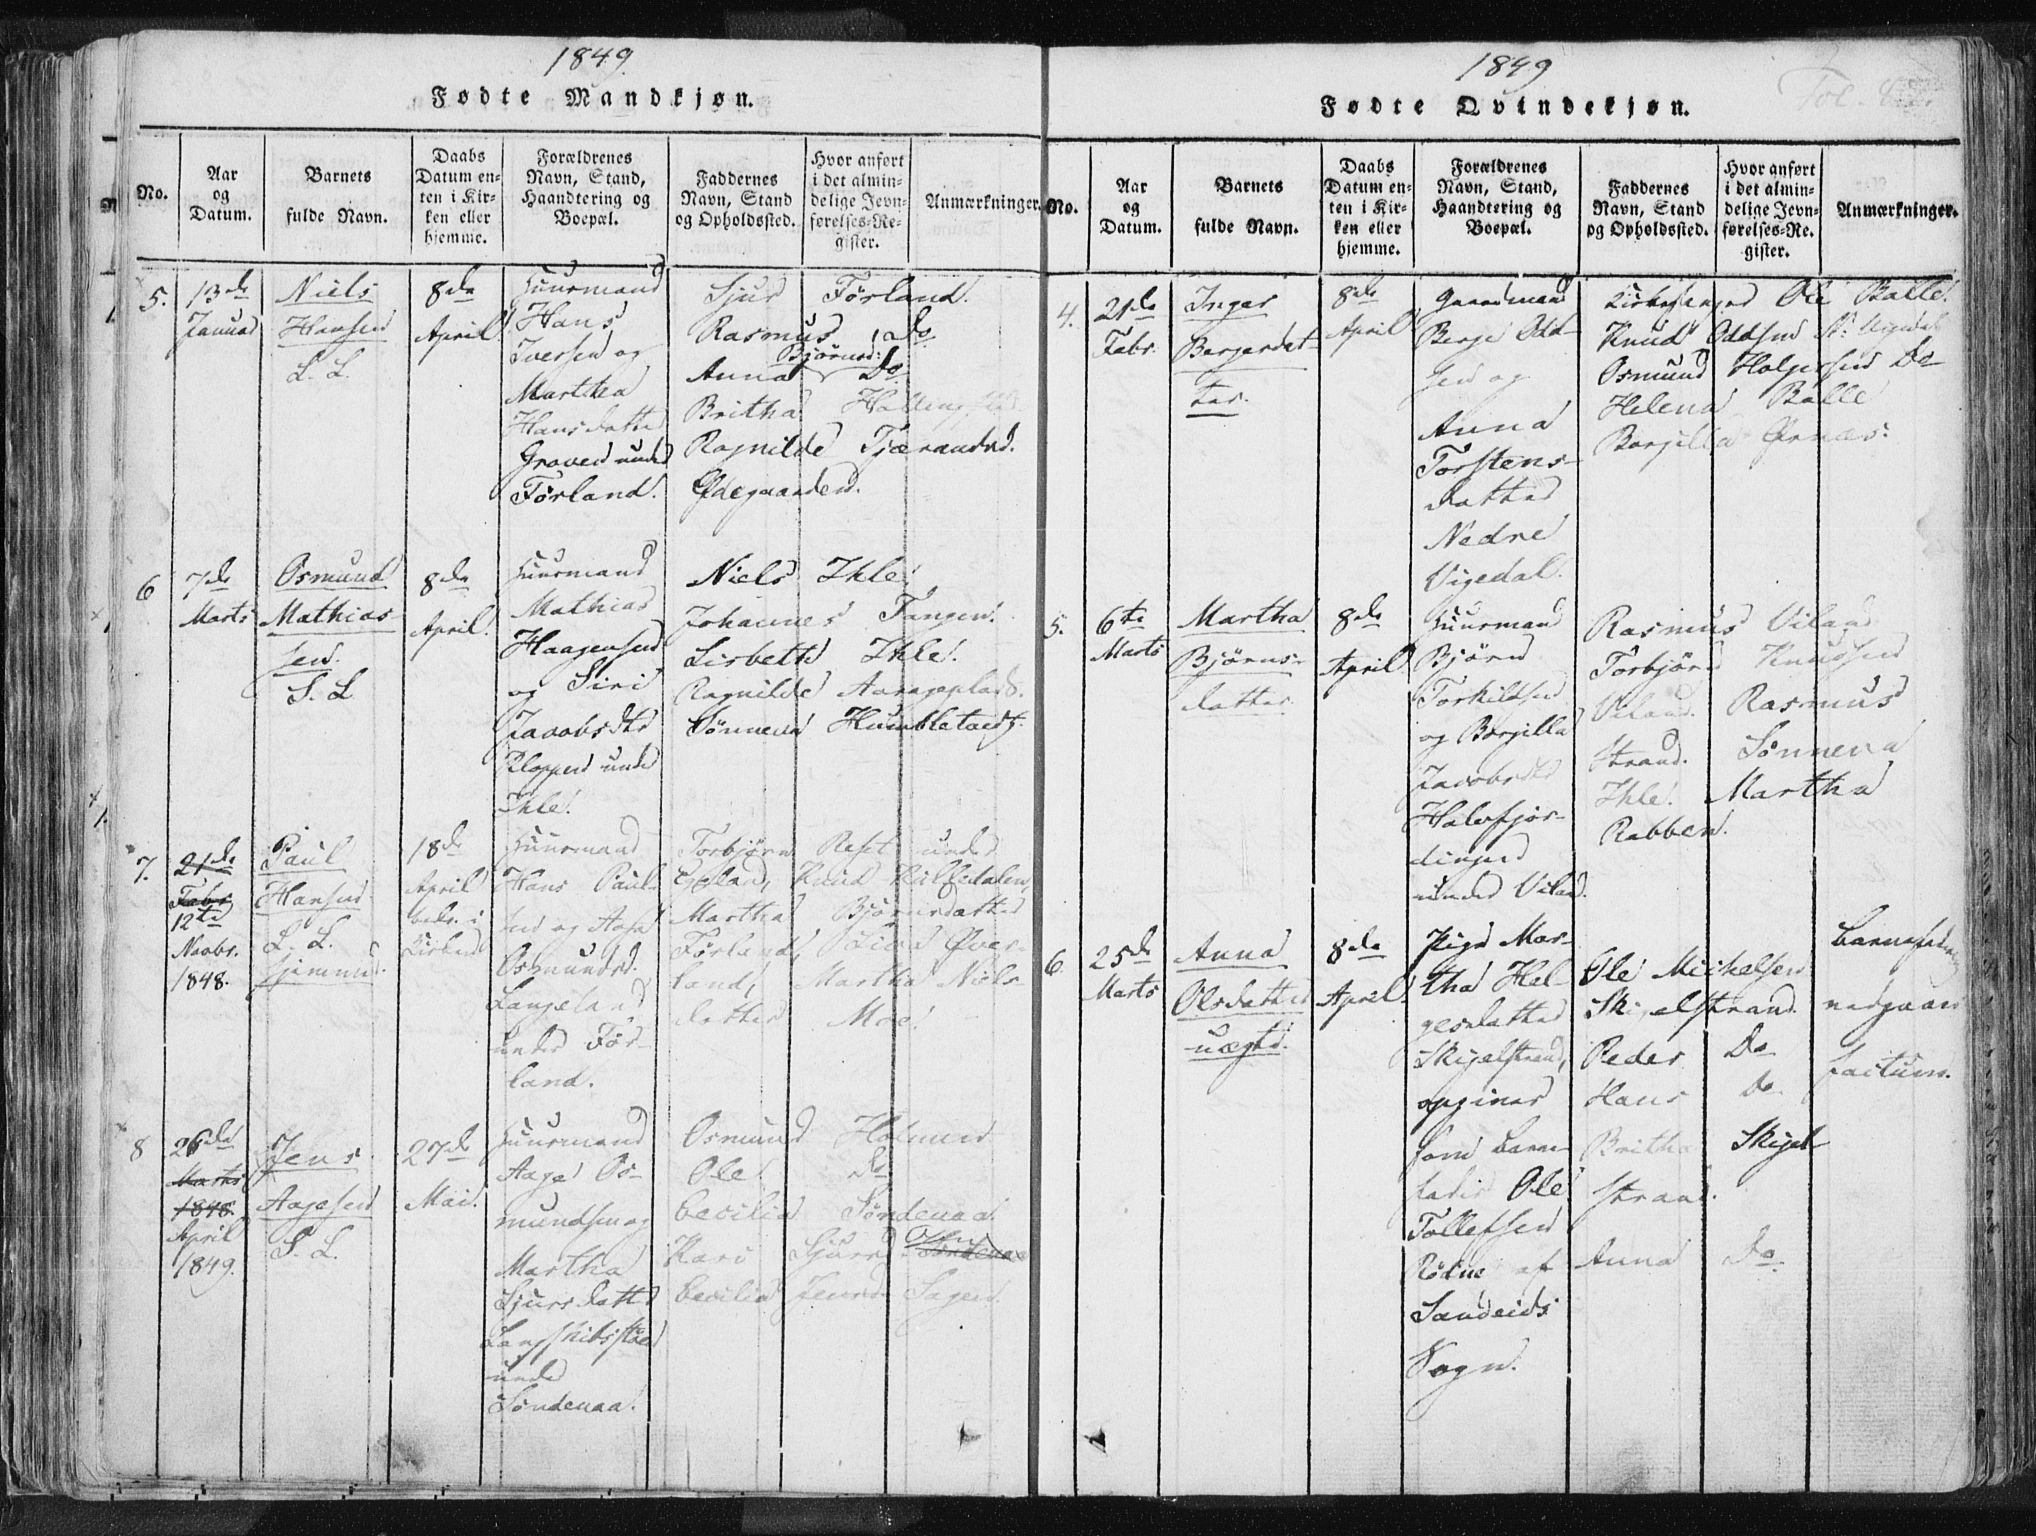 1849
Fødte Mandkjøn.
No.
Aar
og
Datum.
Barnets
fulde Navn.
Daabs
Datum en-
ten i Kir-
ken eller
hjemme.
Forældrenes
Navn, Stand,
Haandtering og
Boepæl.
Faddernes
Navn, Stand
og Opholdssted.
Hvor anført
i det almin-
delige Jevn-
førelses-Re-
gister.
Anmærkninger.
5.
13de
Januar
Niels
Hansen
L. L.
8de
April
Huusmand
Hans
Iversen og
Marthea
Hansdatter
Graven under
Førland.
Sjur Førland.
Rasmus Do
Bjørnsd:
Anna Do
Britha
Ragnilde Tjærandsd.
Ødegaarden.
6
7de
Marts
Osmund
Mathias-
sen.
S. L
8de
April.
Huusmand
Mathias
Haagensen
og Siri
Jacobsdtr
Kloppen under
Ihle.
Niels Ihle.
Johannes Tangen.
Lisbeth Ihle.
Ragnilde Aarageplads.
Sønneva Humblestvedt.
7.
21de
Febr
12te
Novbr.
1848.
Paul
Hansen
L. L.
hjemme
18de
April
bekr. i
Kirken
Huusmand
Hans Paul-
sen og Aasa
Osmundsd.
Langeland
under Før-
land.
Torbjørn under
Knud Killedalen,
Martha Bjørnsdatter
Førland, Øver-
land, Martha Niels-
datter Moe.
8
26de
Marts
1848.
April
1849.
Jens
Aagesen
S. L.
27de
Mai.
Huusmand
Aage Os-
mundsen og
Martha
Sjursdatter
Langskibstøed
under
Søndenaa.
Osmund Holmen
Ole do
Cecilia Søndenaa
Kari Sjursd. Søndenaa
Cecilia Jensd. Sagen.
1849
Fol.
Fødte Qvindekjøn.
No.
Aar
og
Datum.
Barnets
fulde Navn.
Daabs
Datum en-
ten i Kir-
ken eller
hjemme.
Forældrenes
Navn, Stand,
Haandtering og
Boepæl.
Faddernes
Navn, Stand
og Opholdssted.
Hvor anført
i det almin-
delige Jevn-
førelses-Re-
gister.
Anmærkninger.
4.
21de
Febr.
Inger
Bergesdat-
ter.
8de
April
Gaardmand
Berge Odd-
sen og
Anna
Torstens-
datter
Nedre
Vigedal.
Kirkesanger Ole Balle.
Knud Oddsen N: Vigedal
Osmund Holgersen Do
Helena Balle
Borgilla Ørnæs.
5.
6te
Marts
Martha
Bjørns-
datter
8de
April
Huusmand
Bjørn
Torkildsen
og Borgilla
Jacobsdtr
Halvfjor-
dingen
under Viland.
Rasmus Viland
Torbjørn Knudsen
Viland. Rasmus
Strand. Sønneva
Ihle. Martha
Rabben.
6.
25de
Marts
Anna
Olsdatter
uægte.
8de
April.
Pige Mar-
tha Hel-
gesdatter
Skigelstrand,
opgiver
som barne-
fader Ole
Tollefsen
Rødne af
Sandeids
Sogn.
Ole Mickelsen
Skigelstrand.
Peder Do
Hans Do
Britha Skigel-
strand.
Anna Do
Barnefaderen
vedgaaer
factum.